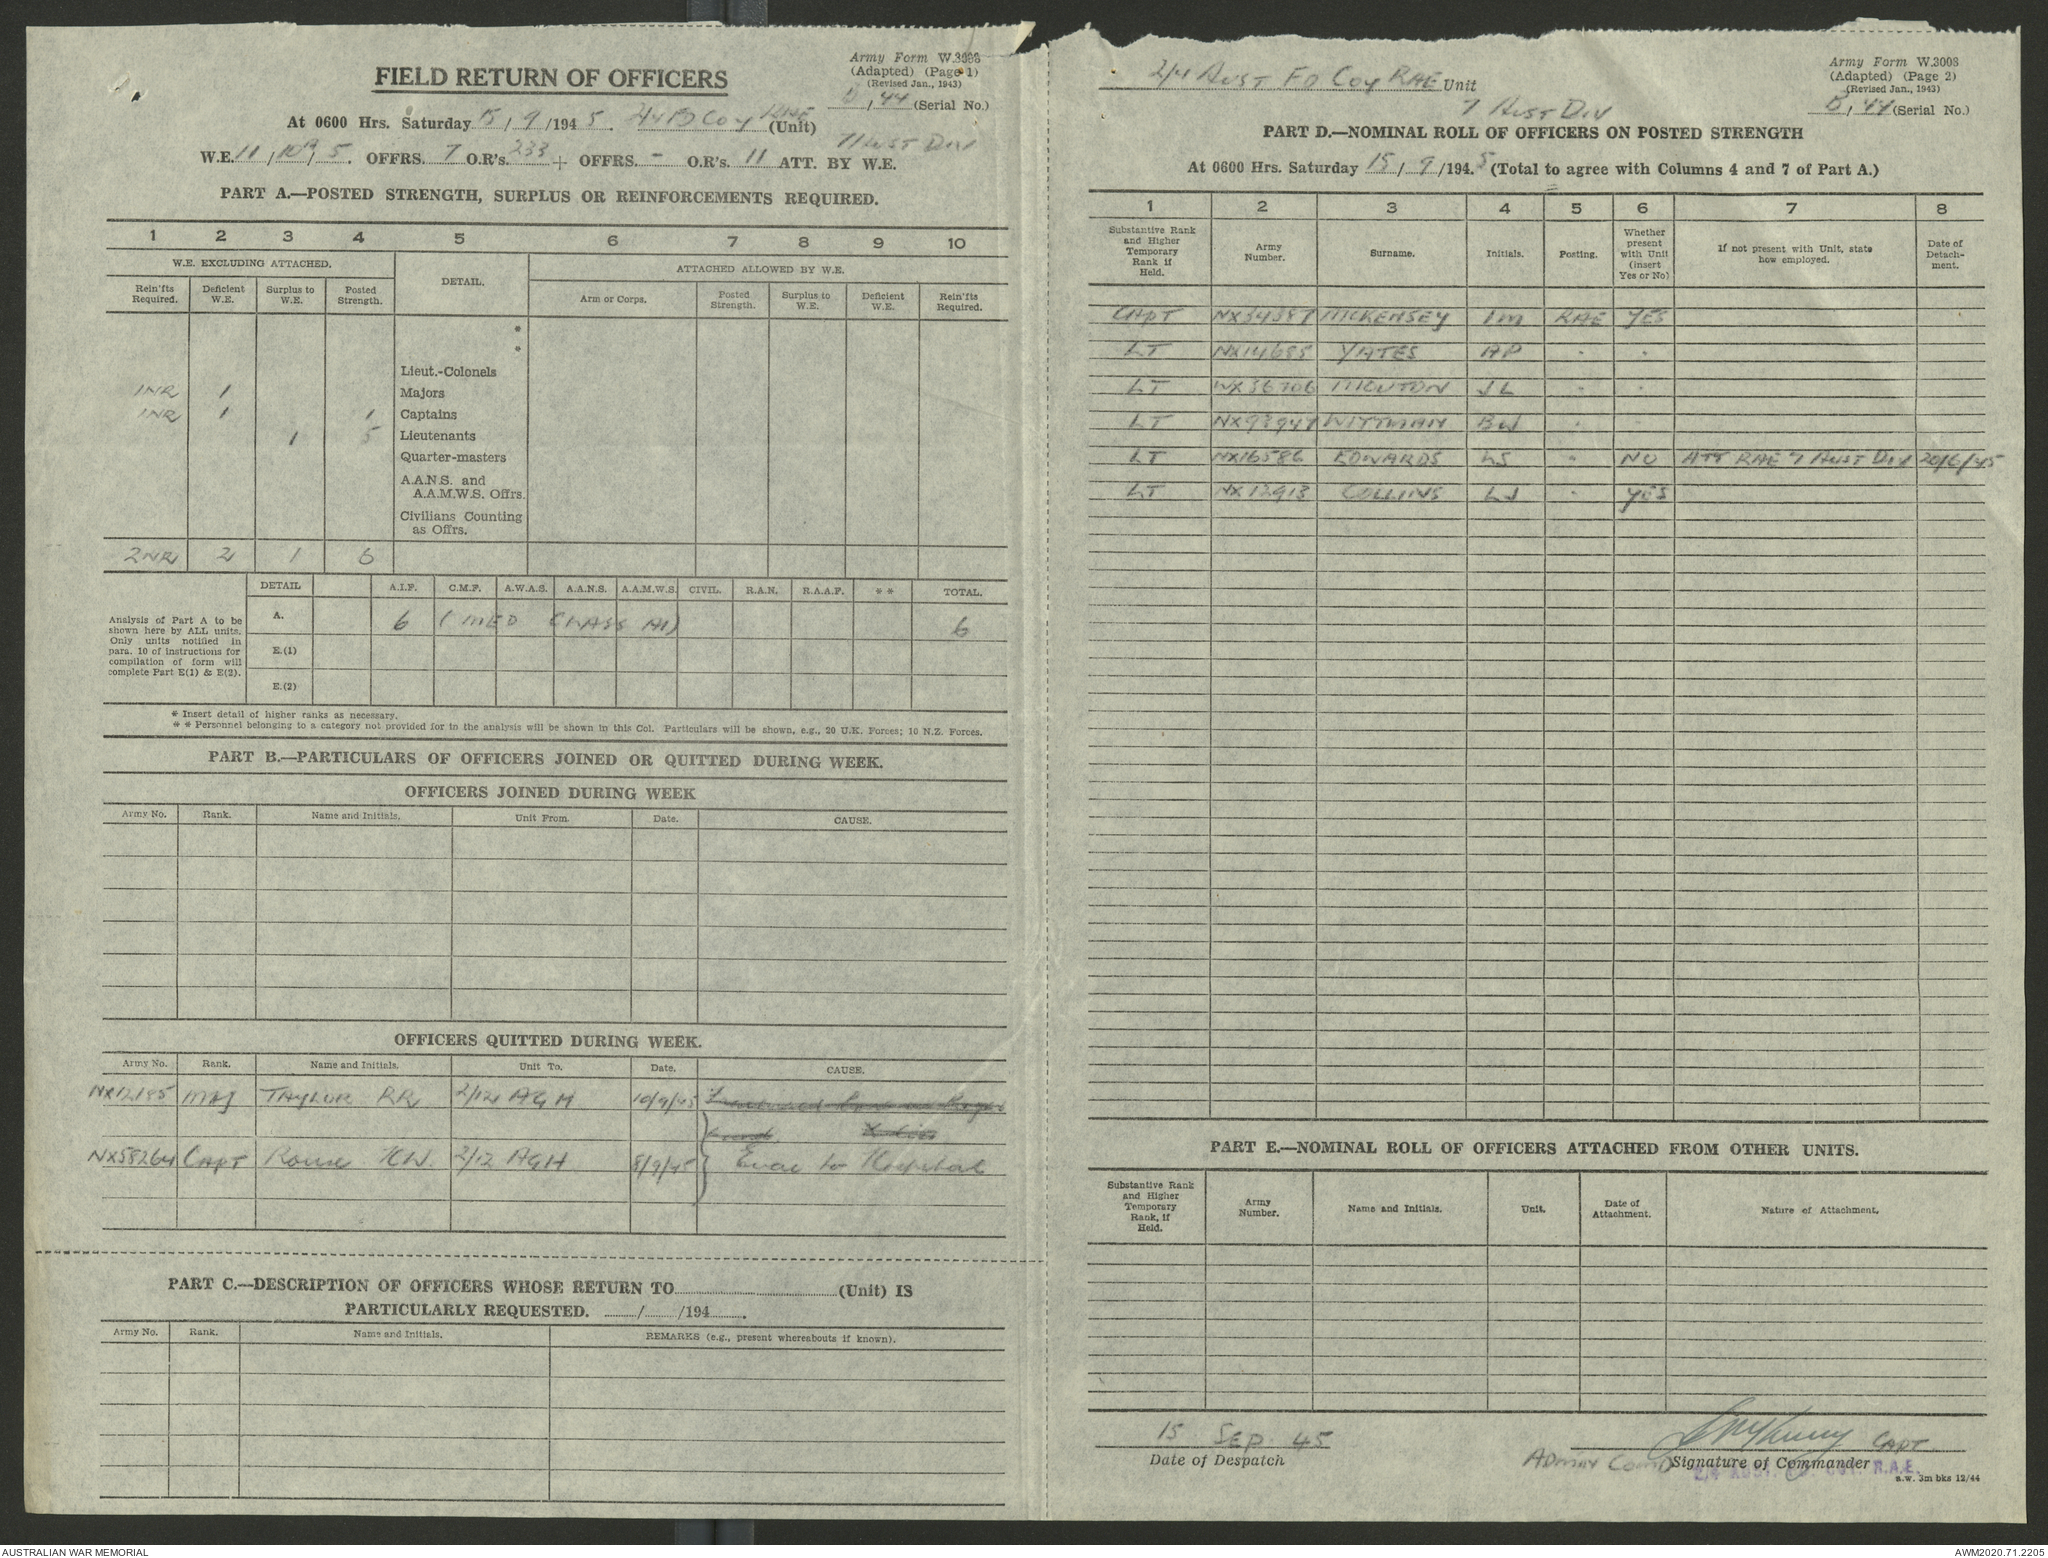 FIELD RETURN OF OFFICERS
Army Form W.3008
(Adapted) (Page 1)
(Revised Jan., 1943)
B, 44 (Serial No.)
At 0600 Hrs. Saturday 15/9/1945. Coy RAE (Unit)
7 Aust Div
W.E. 11, 109, 5. OFFRS. 7 O.R's. 233 + OFFRS. - O.R's. 11 ATT. BY W.E.
PART A.—POSTED STRENGTH, SURPLUS OR REINFORCEMENTS REQUIRED.
1 2 3 4 5 6 7 8 9 10
W.E. EXCLUDING ATTACHED. DETAIL. ATTACHED ALLOWED BY W.E.
Rein'fts Required. Deficient W.E. Surplus to W.E. Posted Strength. Arm or Corps. Posted Strength. Surplus to W.E. Deficient W.E. Rein'fts Required.
*
*
Lieut.-Colonels
1NR 1 Majors
1NR 1 1 Captains
1 5 Lieutenants
Quarter-masters
A.A.N.S. and
A.A.M.W.S. Offrs.
Civilians Counting
as Offrs.
2NR 2 1 6
DETAIL A.I.F. C.M.F. A.W.A.S. A.A.N.S. A.A.M.W.S. CIVIL. R.A.N. R.A.A.F. * * TOTAL.
Analysis of Part A to be
shown here by ALL units.
Only units notified in
para. 10 of instructions for
compilation of form will
complete Part E(1) & E(2).
A. 6 (MED CLASS A1) 6
E.(1)
E.(2)
* Insert detail of higher ranks as necessary.
* * Personnel belonging to a category not provided for in the analysis will be shown in this Col. Particulars will be shown, e.g., 20 U.K. Forces; 10 N.Z. Forces.
PART B.—PARTICULARS OF OFFICERS JOINED OR QUITTED DURING WEEK.
OFFICERS JOINED DURING WEEK
Army No. Rank. Name and Initials. Unit From. Date. CAUSE.
OFFICERS QUITTED DURING WEEK.
Army No. Rank. Name and Initials. Unit To. Date. CAUSE.
NX12185 MAJ TAYLOR RR 2/12 AGH 10/9/45
NX58264 CAPT Rouse KW. 2/12 AGH 8/9/45 Evac to Hospital
PART C.—DESCRIPTION OF OFFICERS WHOSE RETURN TO (Unit) IS
PARTICULARLY REQUESTED. / /194 .
Army No. Rank. Name and Initials. REMARKS (e.g., present whereabouts if known).
2/4 Aust Fd Coy RAE Unit
7 Aust Div
Army Form W.3008
(Adapted) (Page 2)
(Revised Jan., 1943)
B, 44 (Serial No.)
PART D.—NOMINAL ROLL OF OFFICERS ON POSTED STRENGTH
At 0600 Hrs. Saturday 15/9/1945 (Total to agree with Columns 4 and 7 of Part A.)
1 2 3 4 5 6 7 8
Substantive Rank and Higher Temporary Rank if Held. Army Number. Surname. Initials. Posting. Whether present with Unit (insert Yes or No) If not present with Unit, state how employed. Date of Detach-ment.
CAPT NX34387 MCKENSEY IM RAE YES
LT NX14685 YATES AP " "
LT WX36706 MOUTON JL " "
LT NX93947 WITTMAN BW " "
LT NX16586 EDWARDS LS " NO ATT RAE 7 AUST DIV 20/6/45
LT NX12913 COLLINS LJ " YES
PART E.—NOMINAL ROLL OF OFFICERS ATTACHED FROM OTHER UNITS.
Substantive Rank and Higher Temporary Rank, if Held. Army Number. Name and Initials. Unit. Date of Attachment. Nature of Attachment.
15 Sep 45
Date of Despatch
CAPT
Admin Comd Signature of Commander
2/4 AUST. FD. COY. R.A.E.
a.w. 3m bks 12/44
AUSTRALIAN WAR MEMORIAL
AWM2020.71.2205